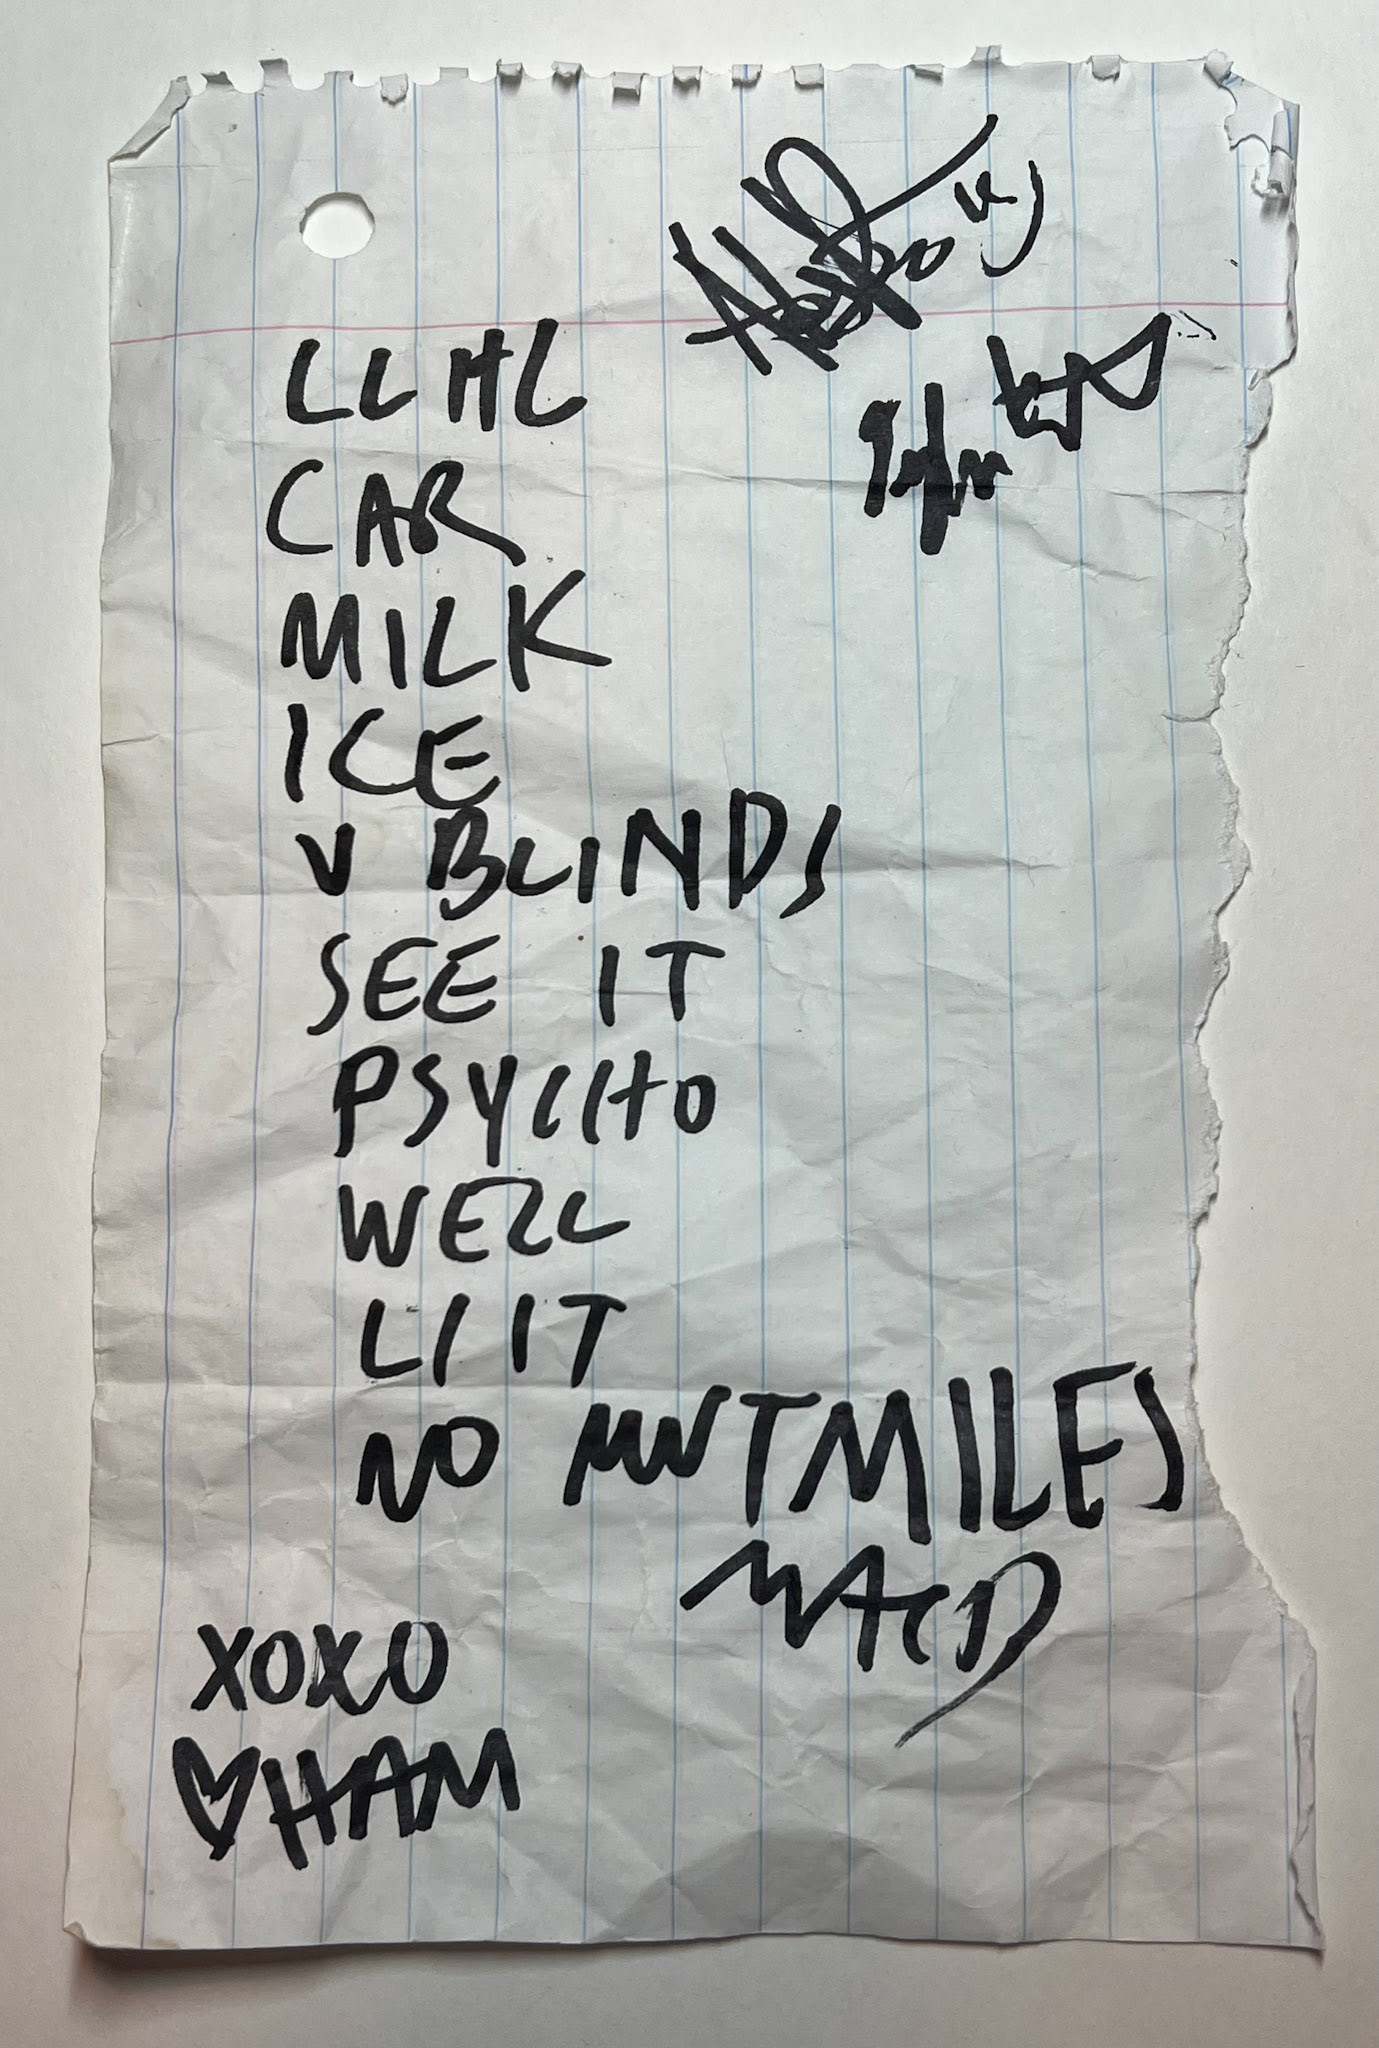 LLHL
CAR
MILK
ICE
V BLINDS
SEE IT
PSYCHO
WELL
LI IT
NO MILES
XOXO
♡HAM